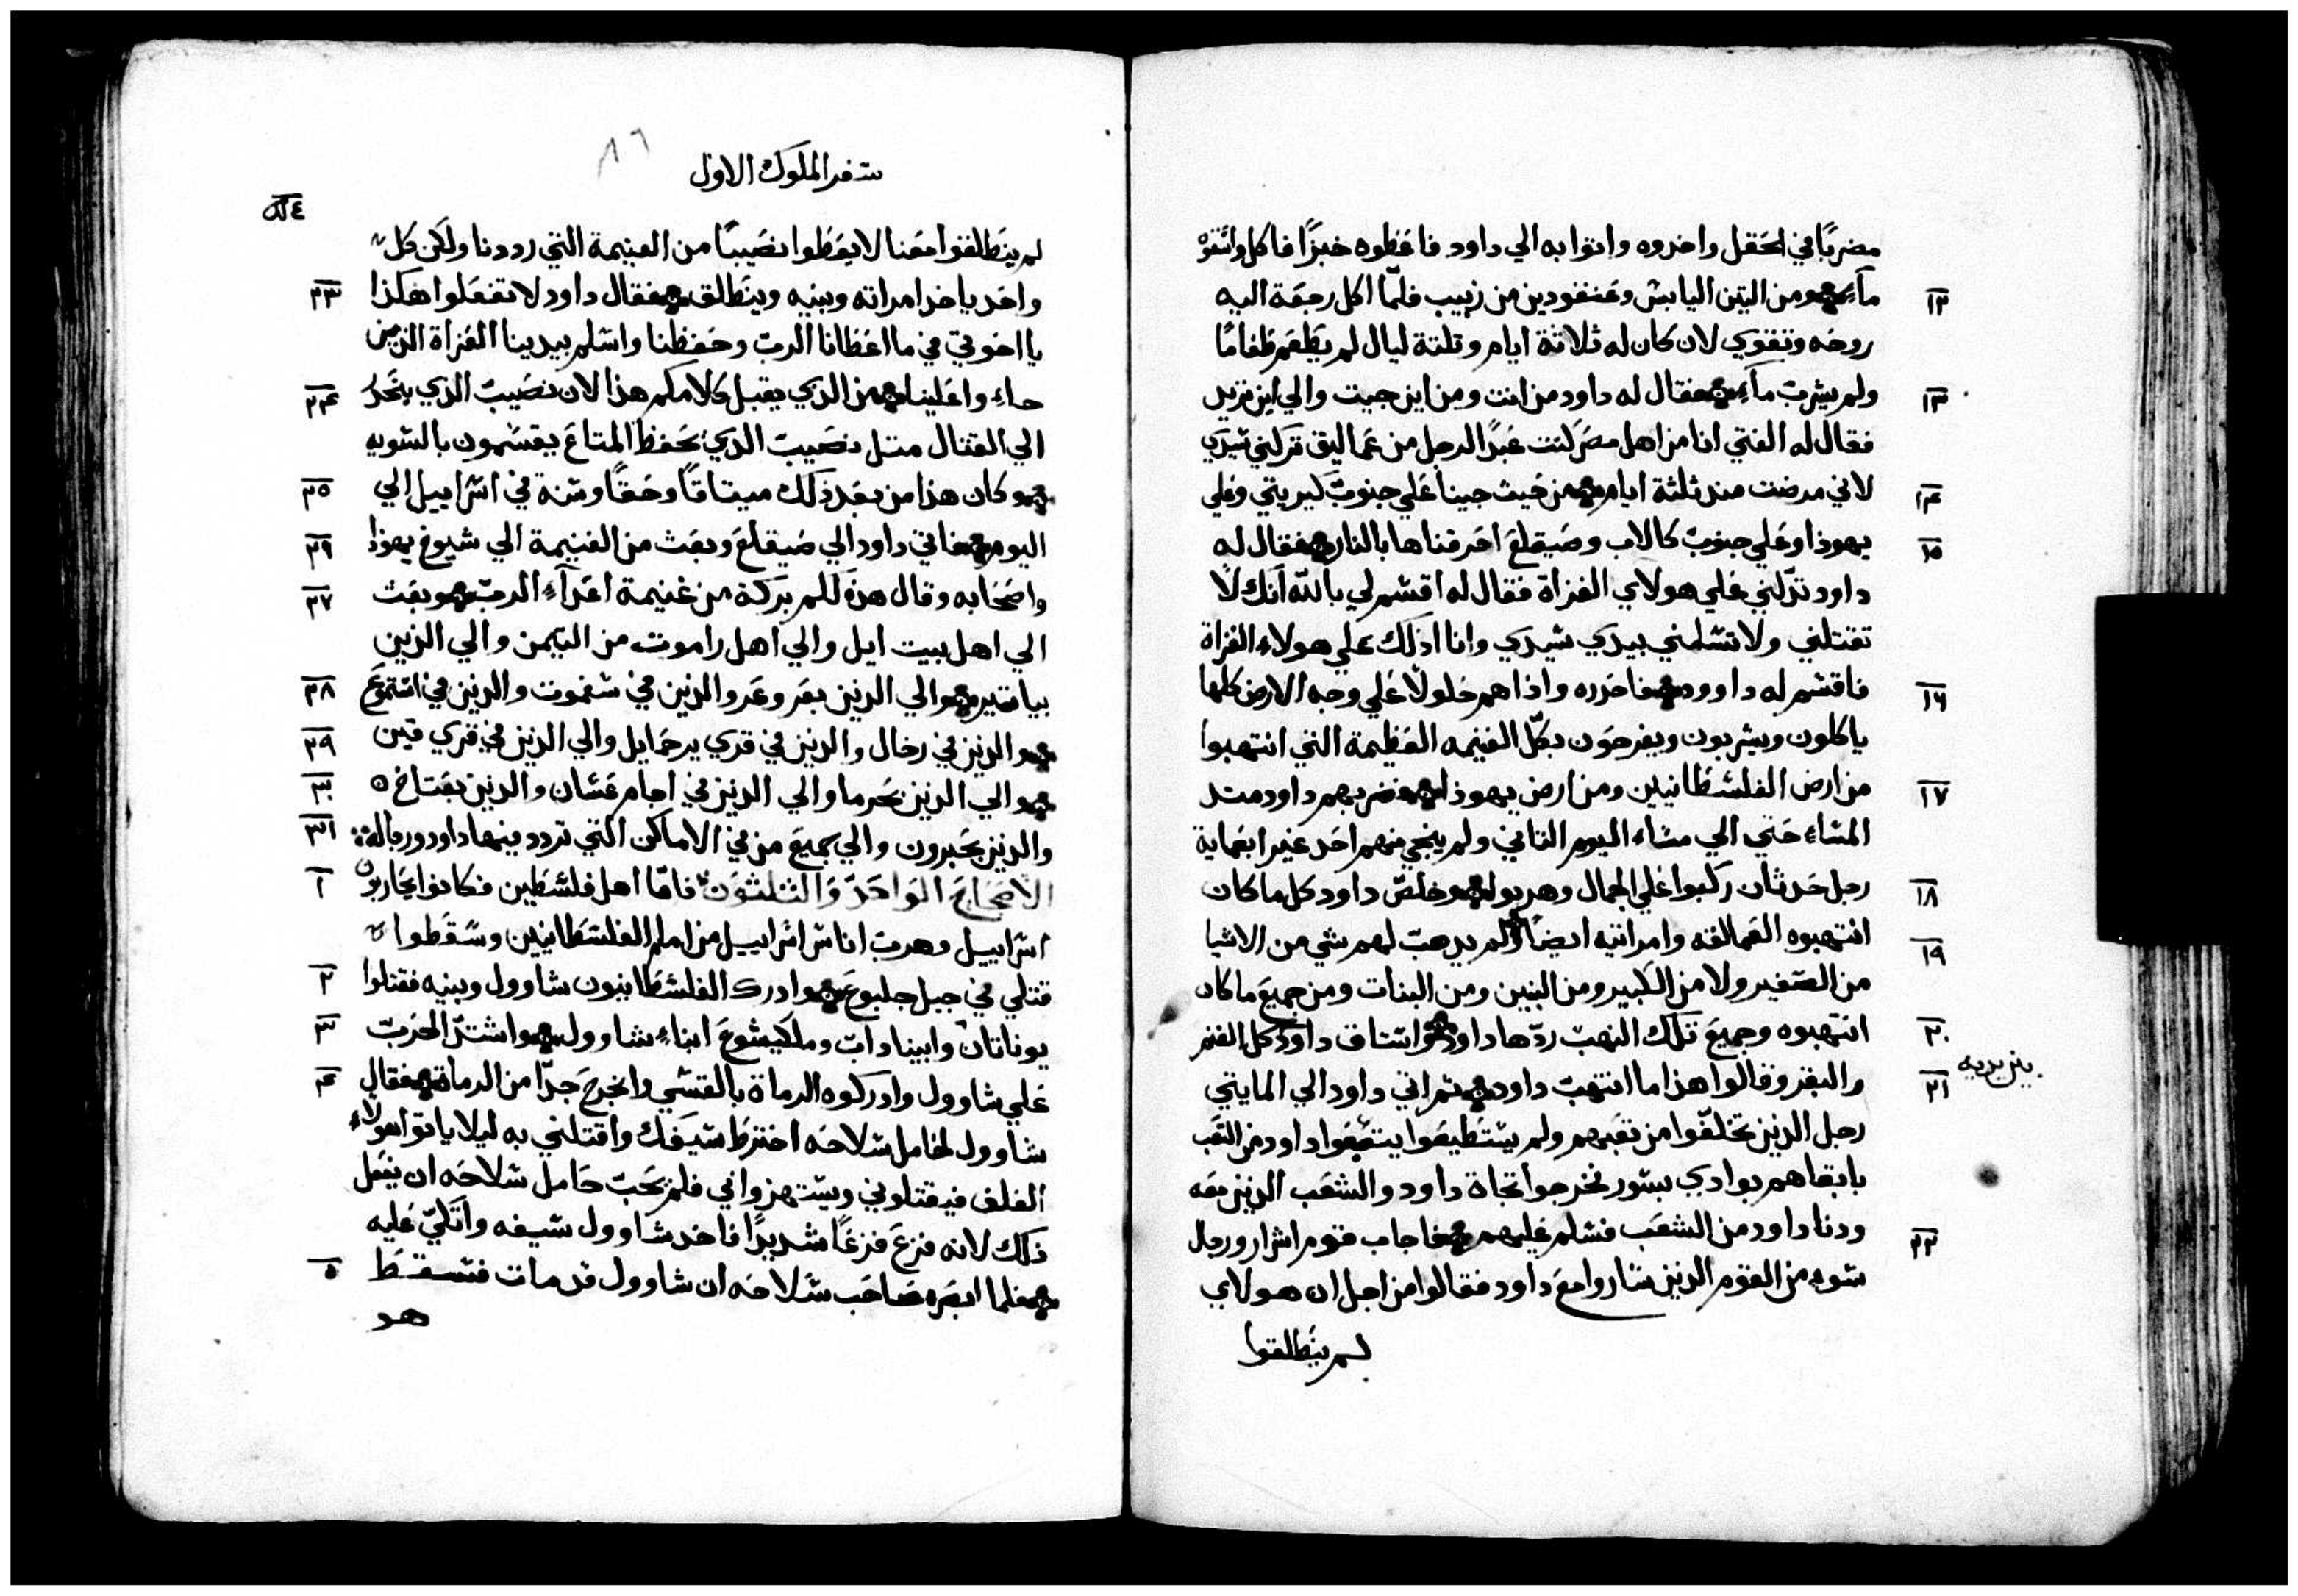 مصريًا في الحقل واخدوه واتوا به الي داود فاعطوه خبزًا فاكل واسقوه
١٢ مآء ومن التين اليابس وعنقودين من زبيب فلمّا اكل رجعة اليه
روحه وتقوي لان كان له ثلاثة ايام وتلتة ليال لم يطعم طعامًا
١٣ ولم يشرب مآء فقال له داود من انت ومن اين جيت والي اين تريد
فقال له الفتي انا من اهل مصر كنت عبدًا لرجل من عماليق تركني سيدي
١٤ لاني مرضت مند ثلثة ايام من حيث جينا علي جنوب كيريتي وعلي
١٥ يهوذا وعلي جنوب كالاب وصيقلع احرقناها بالنار فقال له
داود تدّلني علي هولاي الغزاة فقال له اقسم لي بالله انك لا
تقتلني ولا تسلمني بيدي سيدي وانا ادلك علي هولاء الغزاة
١٦ فاقسم له داوود فاحدره واذا هم حلولًا علي وجه الارض كلها
ياكلون ويشربون ويفرحون بكلّ الغنيمه العظيمة التي انتهبوا
١٧ من ارض الفلسطانيين ومن ارض يهوذا فضربهم داود مند
المساء حتي الي مساء اليوم التاني ولم ينجي منهم احد غير ابعماية
١٨ رجل حدثان ركبوا علي الجمال وهربوا وخلص داود كل ما كان
١٩ انتهبوه العمالقه وامراتيه ايضًا ولم يدهب لهم شي من الاشيا
من الصغير ولا من الكبير ومن البنين ومن البنات ومن جميع ما كان
٢٠ انتهبوه وجميع تلك النهب ردّها داود واستاق داود كل الغنم
بين يديه
٢١ والبقر وقالوا هذا ما انتهب داود تم اتي داود الي المايتي
رجل الدين تخلّفوا من تعبهم ولم يستطيعوا يتبعوا داود من التعب
بابقاهم بوادي بسور فخرجوا تجاة داود والشعب الدين معه
٢٢ ودنا داود من الشعب فسلم عليهم فاجاب قوم اشرار ورجال
سوء من القوم الدين ساروا مع داود فقالوا من اجل ان هولاي
لم ينطلقوا
سفر الملوك الاول
٨٦
لم ينطلقوا معنا لا يعطوا نصيبًا من الغنيمة التي رددنا ولكن كل
٢٣ واحد ياخد امراته وبنيه وينطلق فقال داود لا تفعلوا هكذا
يا اخوتي في ما اعطانا الرب وحفظنا واسلم بيدينا الغزاة الدين
٢٤ جاءوا علينا من الدي يقبل كلامكم هذا لان نصيب الدي ينحدر
الي القتال متل نصيب الدي يحفظ المتاع يقسمون بالسويه
٢٥ وكان هذا من بعد ذلك ميتاقًا وحقًا وسنة في اسراييل الي
٢٦ اليوم فاتي داود الي صيقلع وبعث من الغنيمة الي شيوخ يهوذا
٢٧ واصحابه وقال هذه لكم بركة من غنيمة اعدآء الرب وبعث
الي اهل بيت ايل والي اهل راموت من التيمن والي الذين
٢٨ بياتير والي الدين بعروعر والدين في سفموت والدين في استموع
٢٩ والدين في رخال والدين في قري يرحمايل والي الدين في قري قين
٣٠ والي الدين بحرما والي الدين في اجام عسان والدين بعتاخ
٣١ والدين بحبرون والي جميع من في الاماكن التي تردد فيها داود ورجاله
١ الاصحاح الواحد والتلتون فامّا اهل فلسطين فكانوا يحاربون
اسراييل وهرب اناس اسراييل من امام الفلسطانيين وسقطوا
٢ قتلي في جبل جلبوع وادرك الفلسطانيون شاوول وبنيه فقتلوا
٣ يوناتان وابيناداب وملكيشوع ابناء شاوول واشتدّ الحرب
٤ علي شاوول وادركوه الرماة بالقسي وانجرح جدّا من الرماة فقال
شاوول لحامل سلاحه اخترط سيفك واقتلني به ليلا ياتوا هولاء
الغلف فيقتلوني ويستهزوا في فلم يحب حامل سلاحه ان يفعل
ذلك لانه فزع فزعًا شديدًا فاخد شاوول سيفه واتكي عليه
٥ فلما ابصره صاحب سلاحه ان شاوول قد مات فسقط
هو